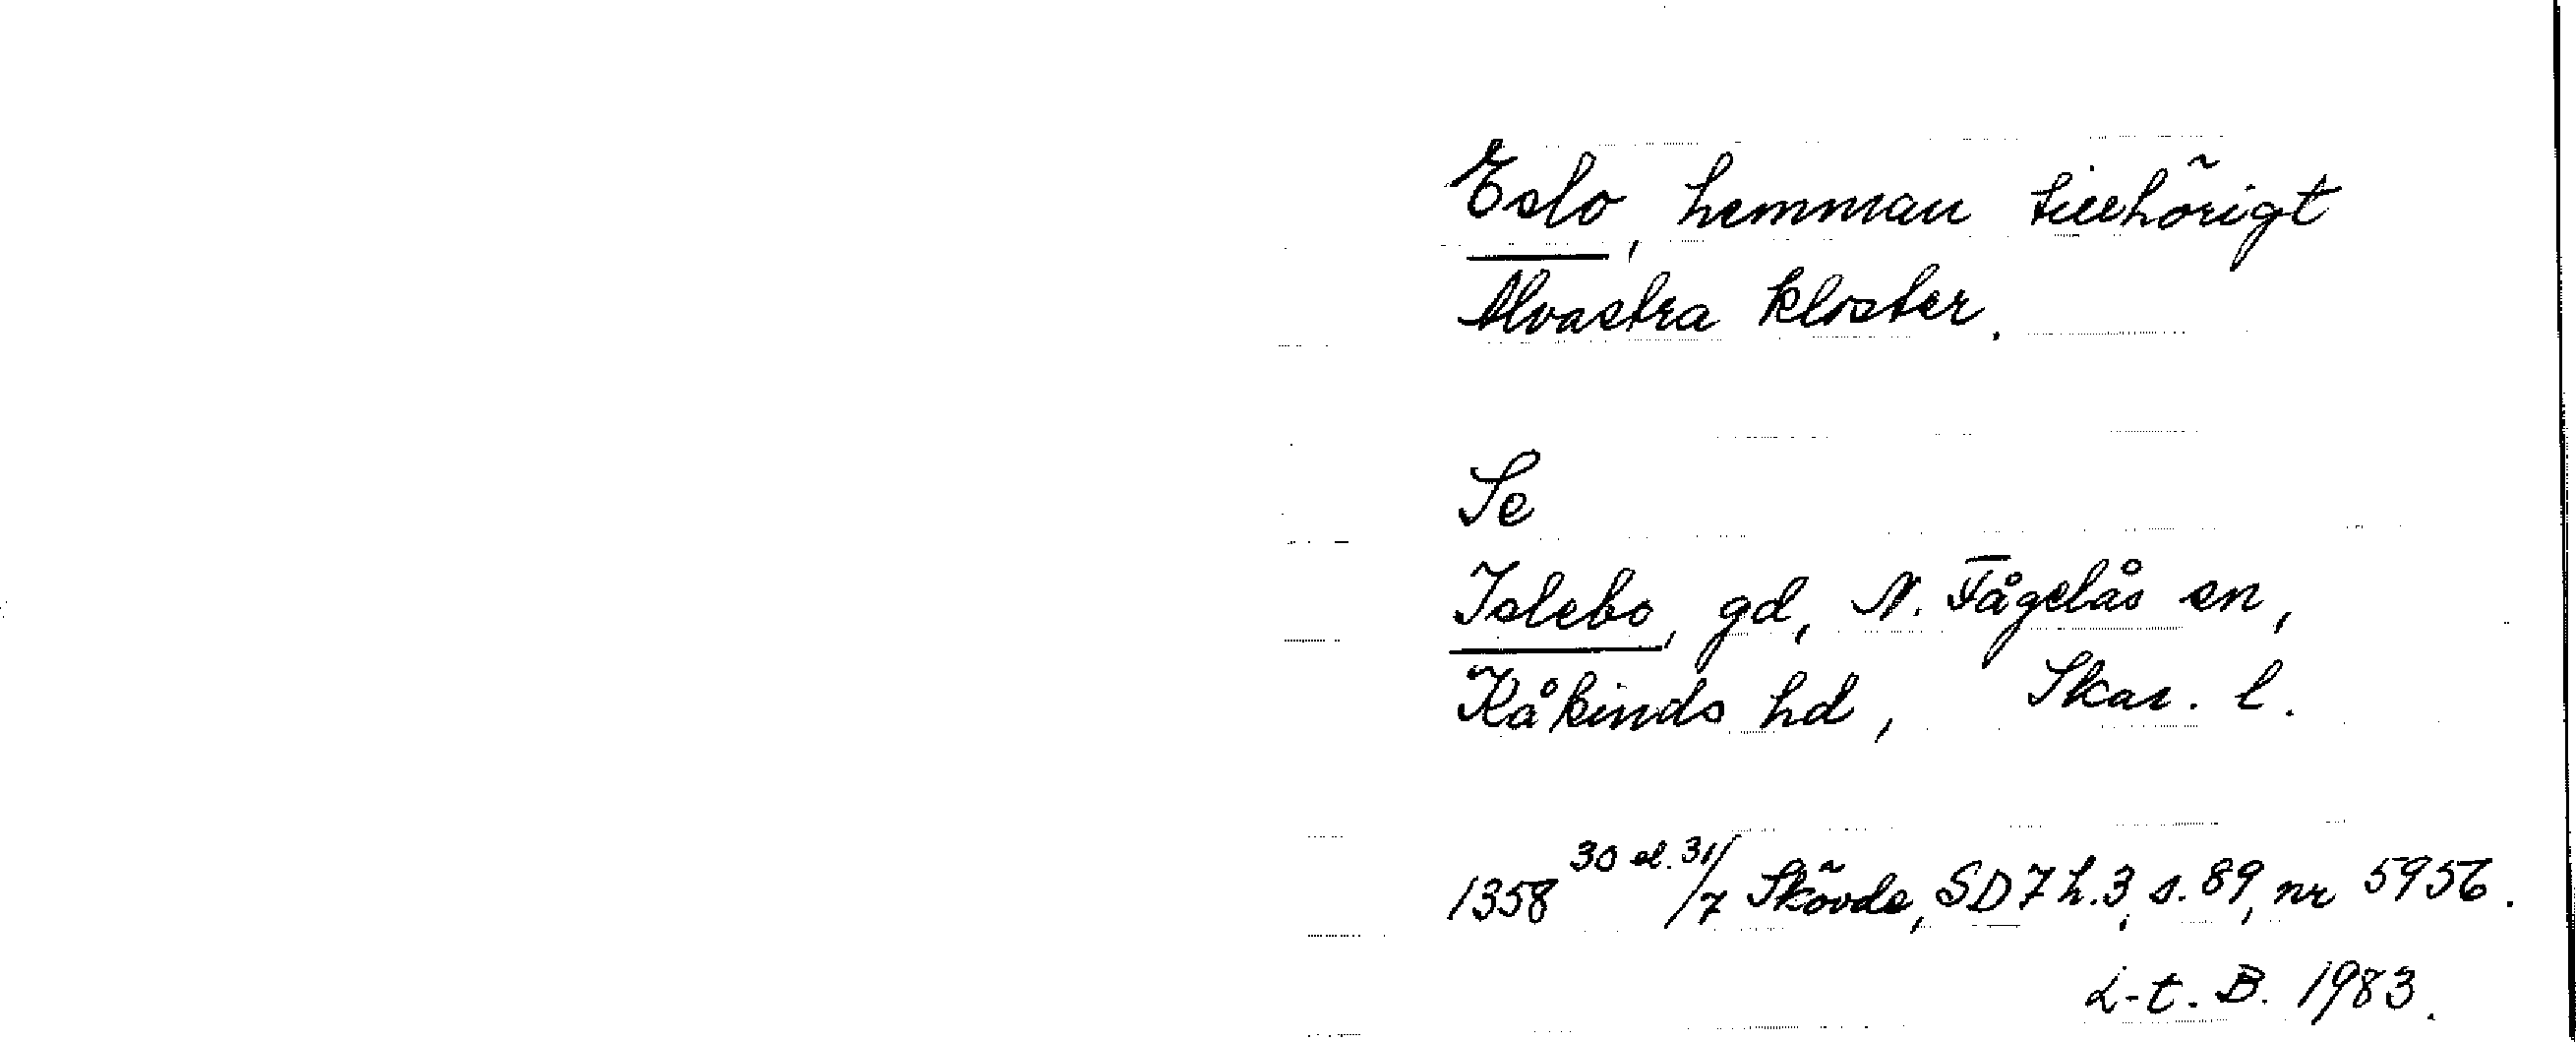 Eslo, hemman tillhörigt
Alvastra kloster.
Se
Islebo, gd, N. Fågelås sn,
Kåkinds hd, Skar. l.
1358 30 el. 31/7 Skövde, SD 7 h.3, s. 89, nr 5956.
L-t. B. 1983.